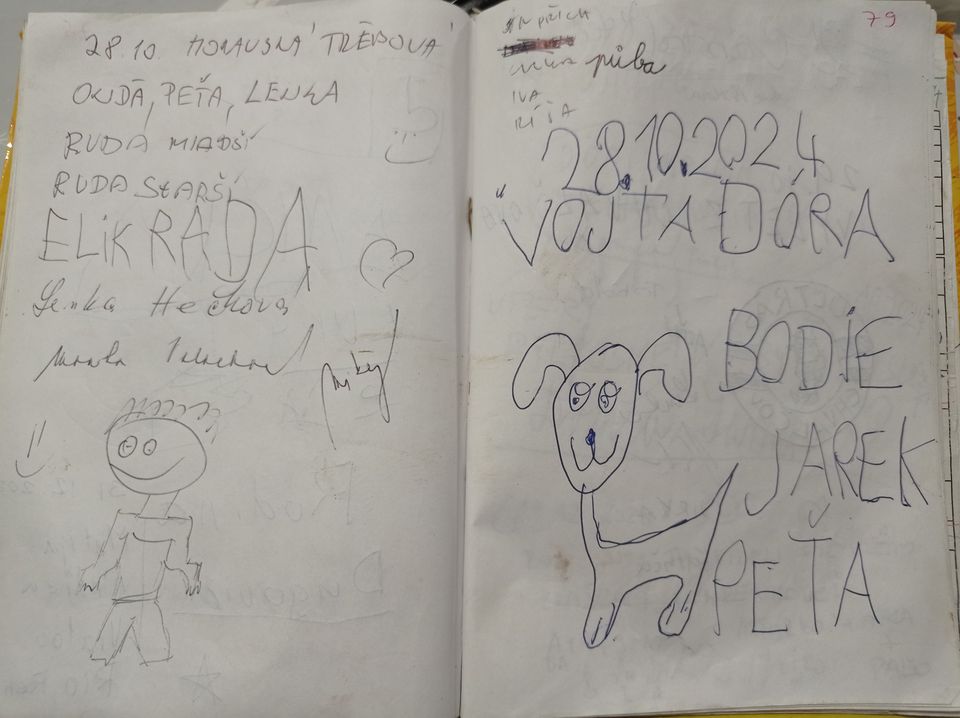 28.10. MORAVSKÁ TŘEBOVÁ
ONDA, PEŤA, LENKA
RUDA MLADŠÍ
RUDA STARŠÍ
ELIK RADA
Lenka Hečková
79
JINDŘICH
IVA
28.10.2024
VOJTA DÓRA
BODIE
JAREK
PEŤA